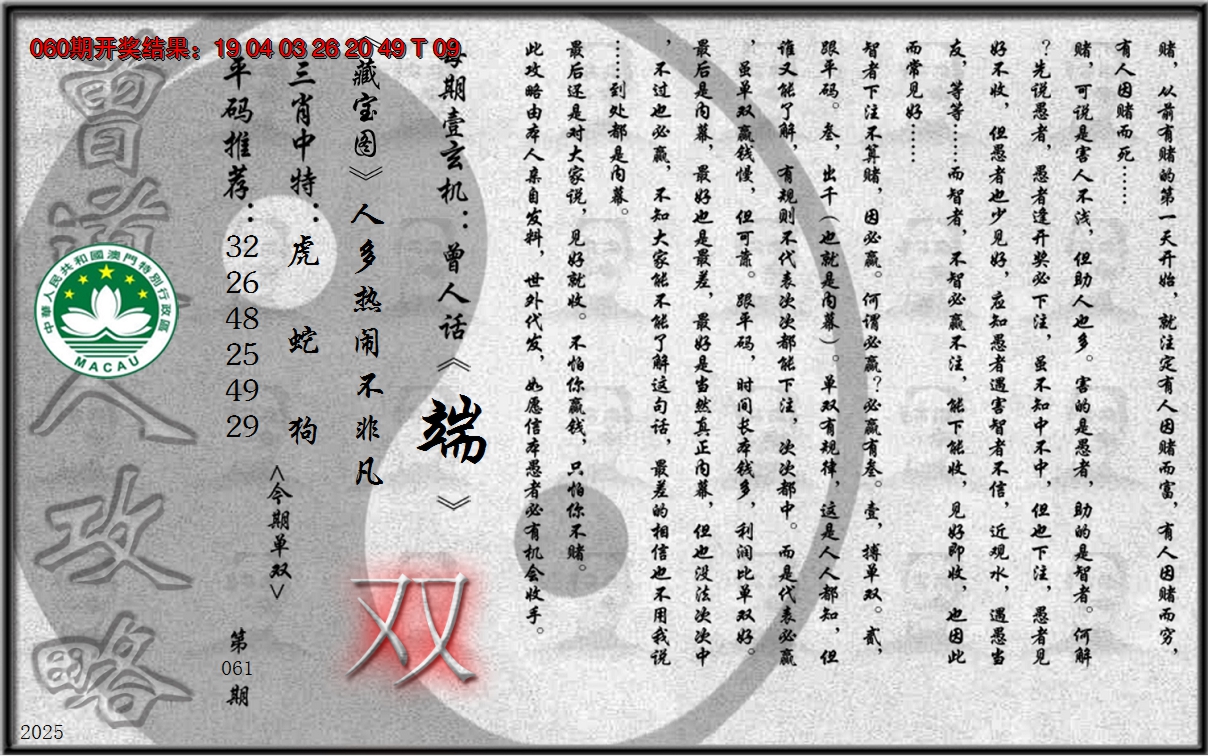 060期开奖结果：19 04 03 26 20 49 T 09
赌，从前有赌的第一天开始，就注定有人因赌而富，有人因赌而穷，
有人因赌而死……
赌，可说是害人不浅，但助人也多。害的是愚者，助的是智者。何解
？先说愚者，愚者逢开奖必下注，虽不知中不中，但也下注，愚者见
好不收，但愚者也少见好，应知愚者遇害智者不信，近观水，遇愚当
友，等等……而智者，不智必赢不注，能下能收，见好即收，也因此
而常见好……
智者下注不算赌，因必赢。何谓必赢？必赢有叁。壹，搏单双。贰，
跟平码。叁，出千（也就是内幕）。单双有规律，这是人人都知，但
谁又能了解，有规则不代表次次都能下注，次次都中。而是代表必赢
，虽单双赢钱慢，但可靠。跟平码，时间长本钱多，利润比单双好。
最后是内幕，最好也是最差，最好是当然真正内幕，但也没法次次中
，不过也必赢，不知大家能不能了解这句话，最差的相信也不用我说
……到处都是内幕。
最后还是对大家说，见好就收。不怕你赢钱，只怕你不赌。
此攻略由本人亲自发料，世外代发，如愿信本愚者必有机会收手。
每期壹玄机：曾人话《端》
《藏宝图》人多热闹不非凡
双
三肖中特：虎 蛇 狗
<今期单双>
平码推荐：32 26 48 25 49 29
第061期
曾道人攻略
中華人民共和國澳門特別行政區
MACAU
2025